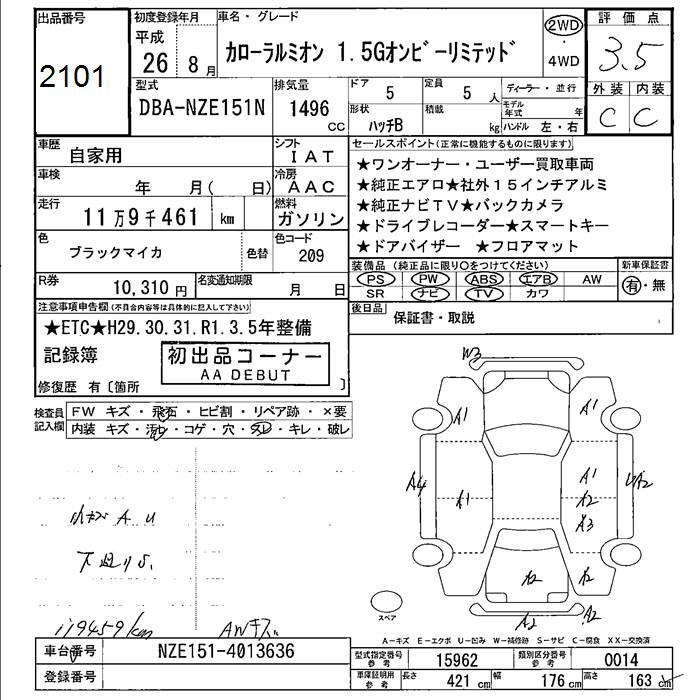 出品番号 初度登録年月 車名・グレード 評価点
2101 平成 26 8月 カローラルミオン 1.5Gオンビーリミテッド 2WD ・ 4WD 3.5
型式 排気量 ドア 5 定員 5人 ディーラー・並行 外装 内装
DBA-NZE151N 1496 CC 形状 ハッチB 積載 kg モデル年式 年 ハンドル 左・右 C C
車歴 自家用 シフト IAT セールスポイント(正常に機能するものに限ります)
車検 年 月( 日) 冷房 AAC ★ワンオーナー・ユーザー買取車両
★純正エアロ★社外15インチアルミ
走行 11万9千461 km 燃料 ガソリン ★純正ナビTV★バックカメラ
★ドライブレコーダー★スマートキー
色 ブラックマイカ 色替 色コード 209 ★ドアバイザー ★フロアマット
R券 10,310円 名変通知期限 月 日 装備品(純正品に限り○をつけてください) 新車保証書
PS PW ABS エアB AW 有・無
SR ナビ TV カワ
注意事項申告欄(不具合内容等は具体的に記入して下さい) 後日品 保証書・取説
★ETC★H29.30.31.R1.3.5年整備
記録簿 初出品コーナー
AA DEBUT
修復歴 有〔箇所 〕
検査員記入欄 FW キズ・飛石・ヒビ割・リペア跡・×要
内装 キズ・汚れ・コゲ・穴・スレ・キレ・破レ
W3
A1 A1
A4 A1 A1 UA2
A2
A3
小キズ A U
下廻りS.
A2 A2
スペア A2 A2
119459km AWキズ
A-キズ E-エクボ U-凹み W-補修跡 S-サビ C-腐食 XX-交換済
車台番号 NZE151-4013636 型式指定番号 参考 15962 類別区分番号 参考 0014
登録番号 車庫証明用 参考 長さ 421cm 幅 176cm 高さ 163cm